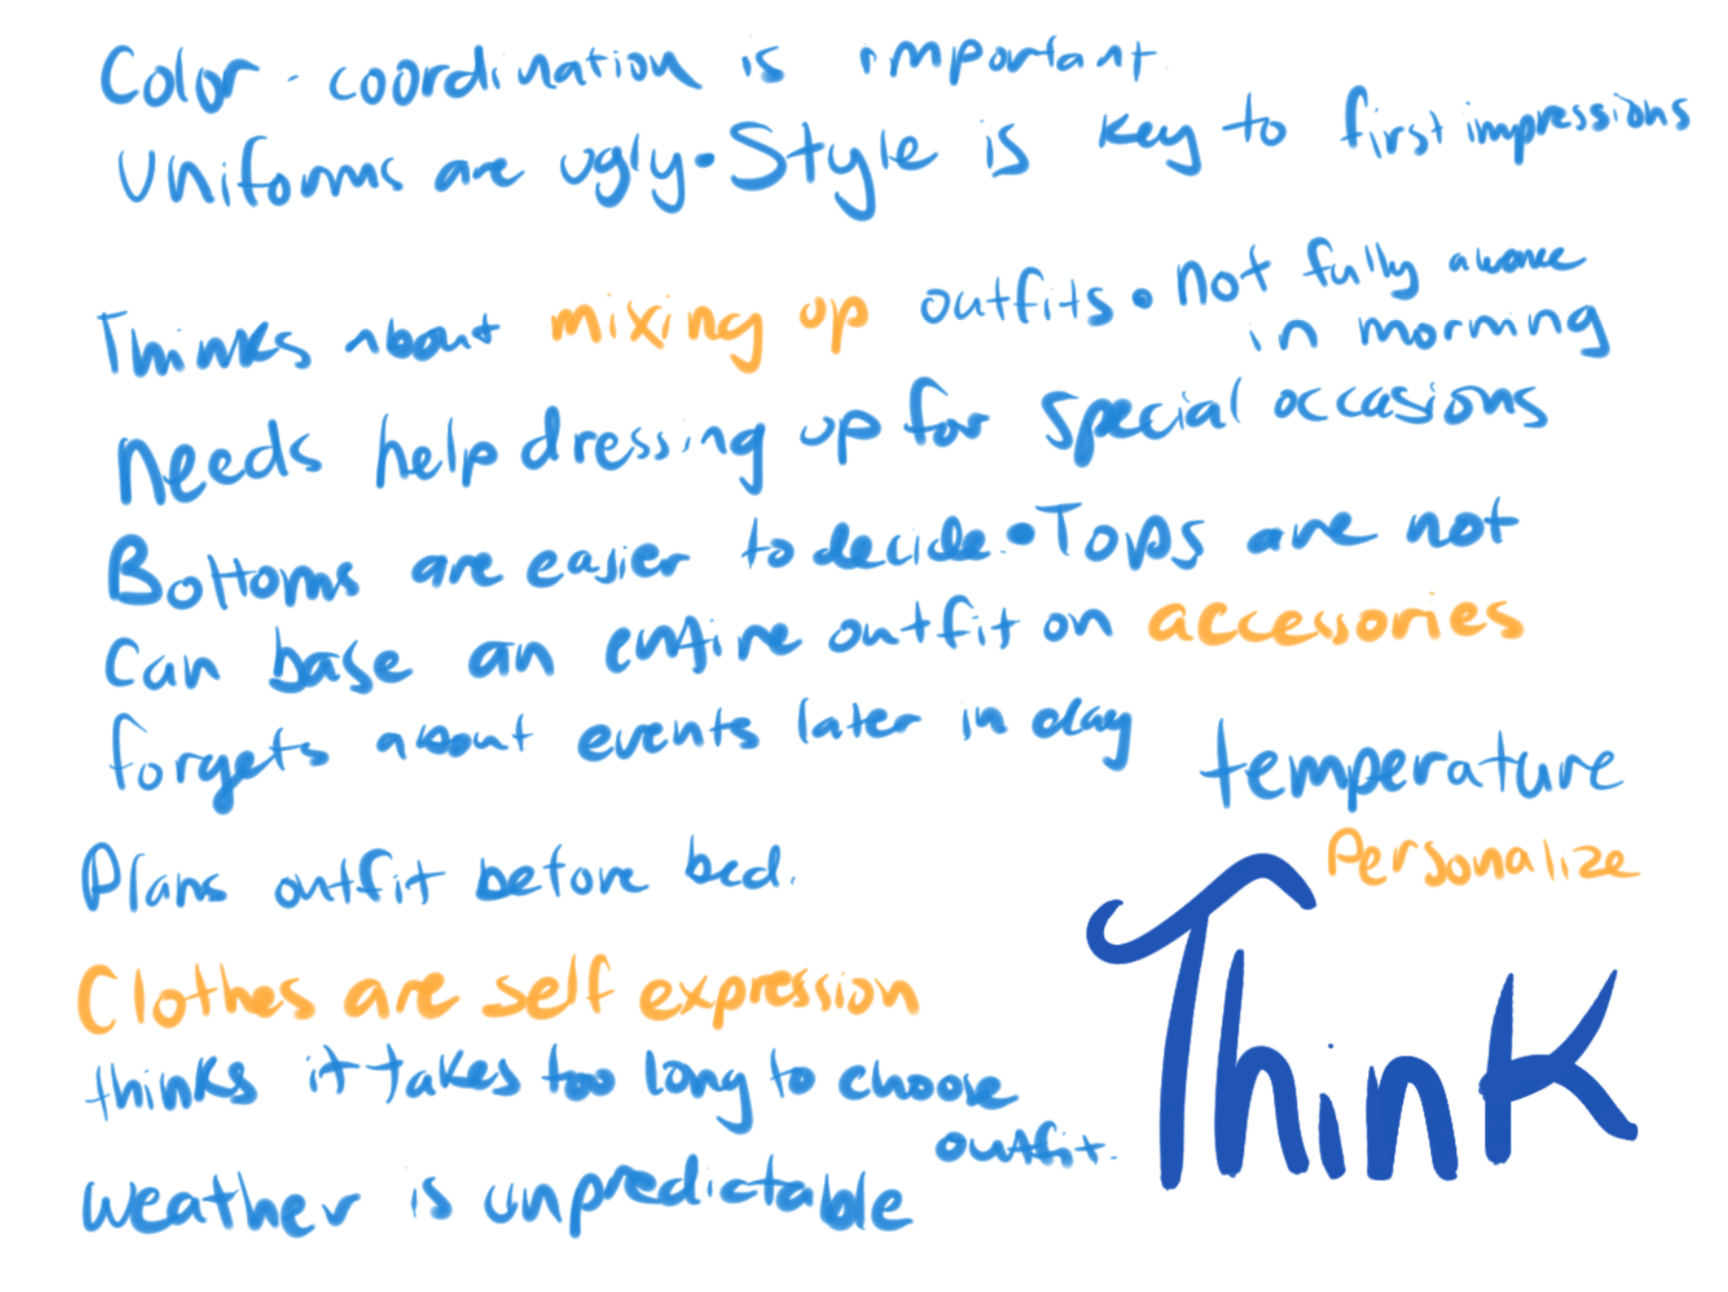 Color-coordination is important
Uniforms are ugly • Style is key to first impressions
Thinks about mixing up outfits • not fully aware
in morning
Needs help dressing up for special occasions
Bottoms are easier to decide. • Tops are not
Can base an entire outfit on accessories
forgets about events later in day
temperature
Personalize
Plans outfit before bed.
Think
Clothes are self expression
thinks it takes too long to choose
outfit.
weather is unpredictable